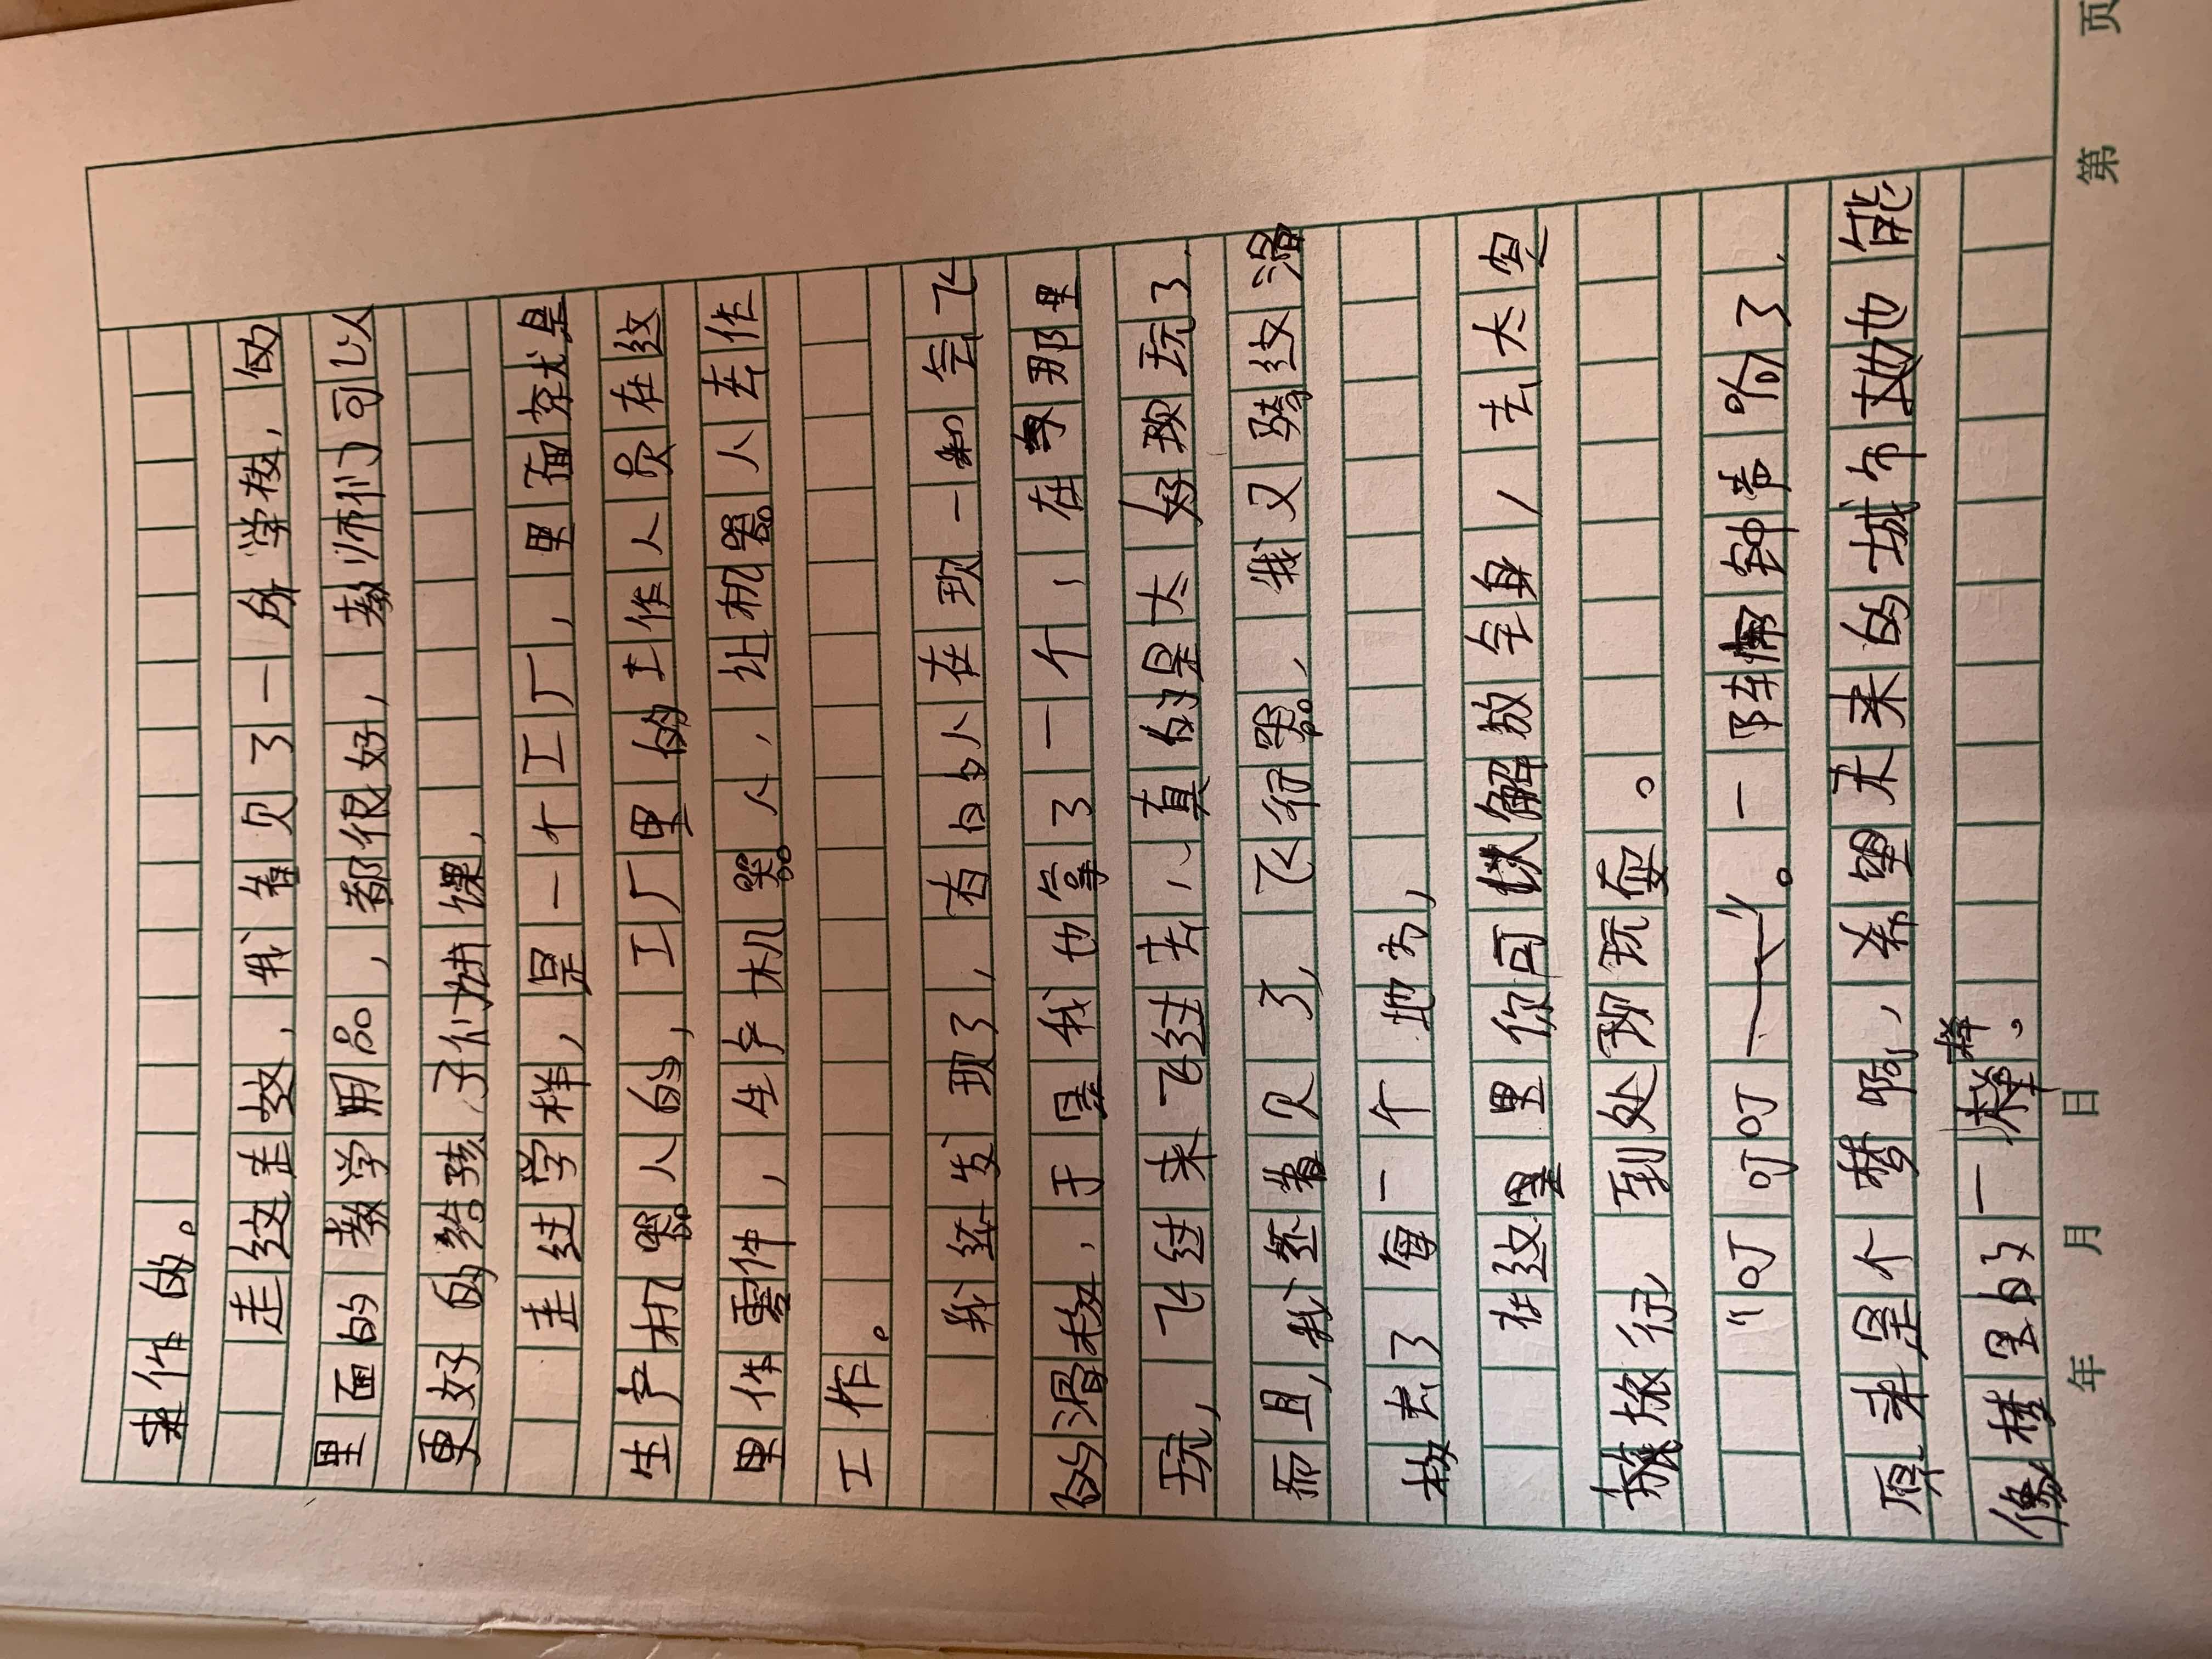 来作的。
走这走这，我看见了一所学校，的
里面的教学用品，都很好，教师们可以以
更好的给孩子们讲课，
走过学样，是一个工厂，里面竟就是
生产机器人的，工厂里的工作人员在这
里作零件，生产机器人，让机器人去作
工作。
我还发现了，有的人在玩一种会飞
的滑板，于是我也拿了一个，在那里
玩，飞过来飞过去，真的是太好玩了，
而且，我还看见了，飞行器，我又骑这滑
板去了每一个地方，
在这里你可以解放全身，去太空
旅行，到处玩耍。
“叮叮叮——”。一阵闹钟声响了，
原来是个梦啊，希望未来的城市也能
像梦里的一样。
年 月 日 第 页